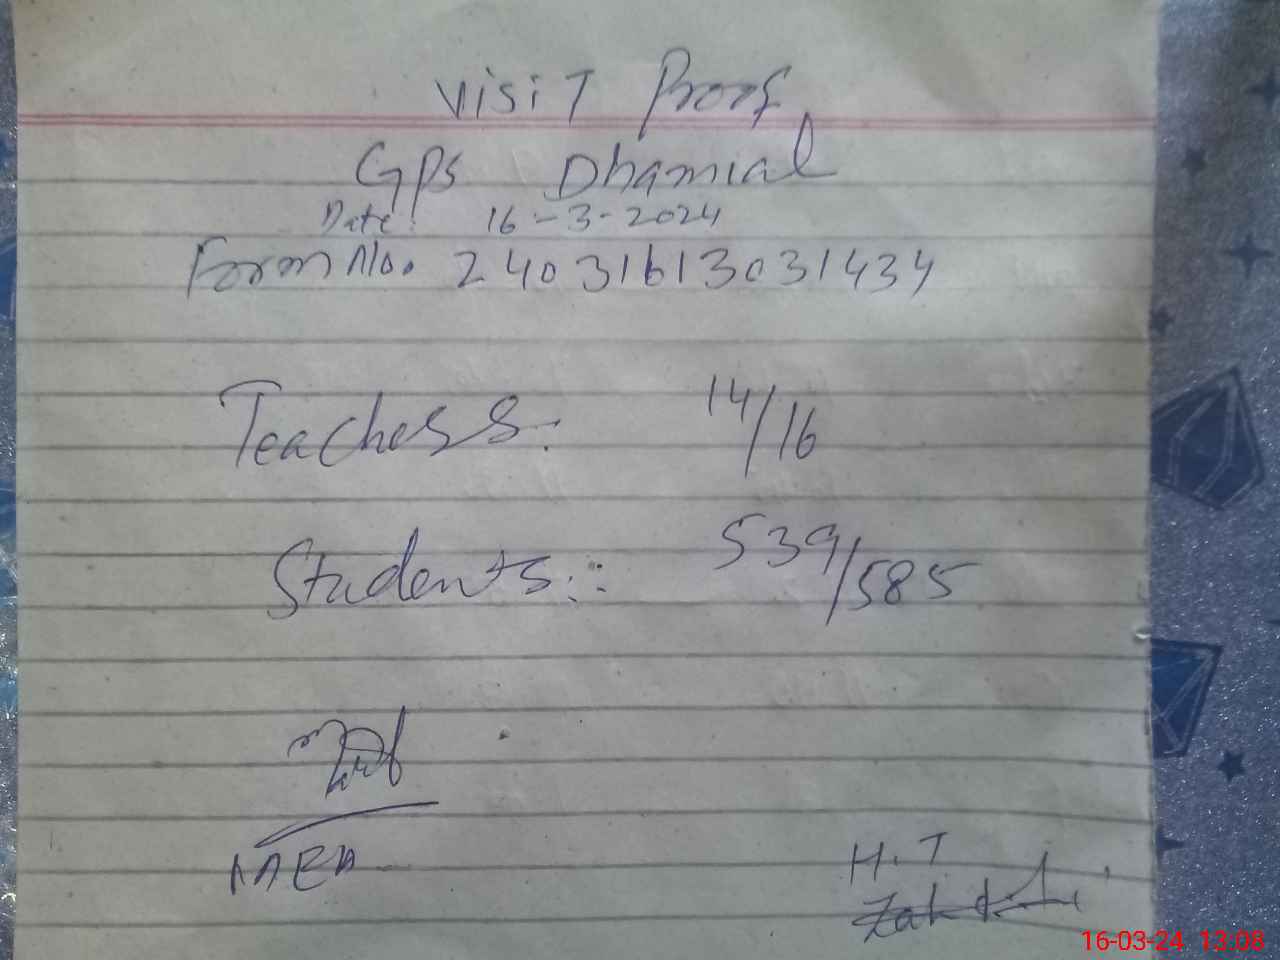 Visit Proof
GPS Dhamial
Date: 16-3-2024
Form No. 24031613031434
Teachers: 14/16
Students:: 539/585
MEA
H.T
16-03-24 13:08